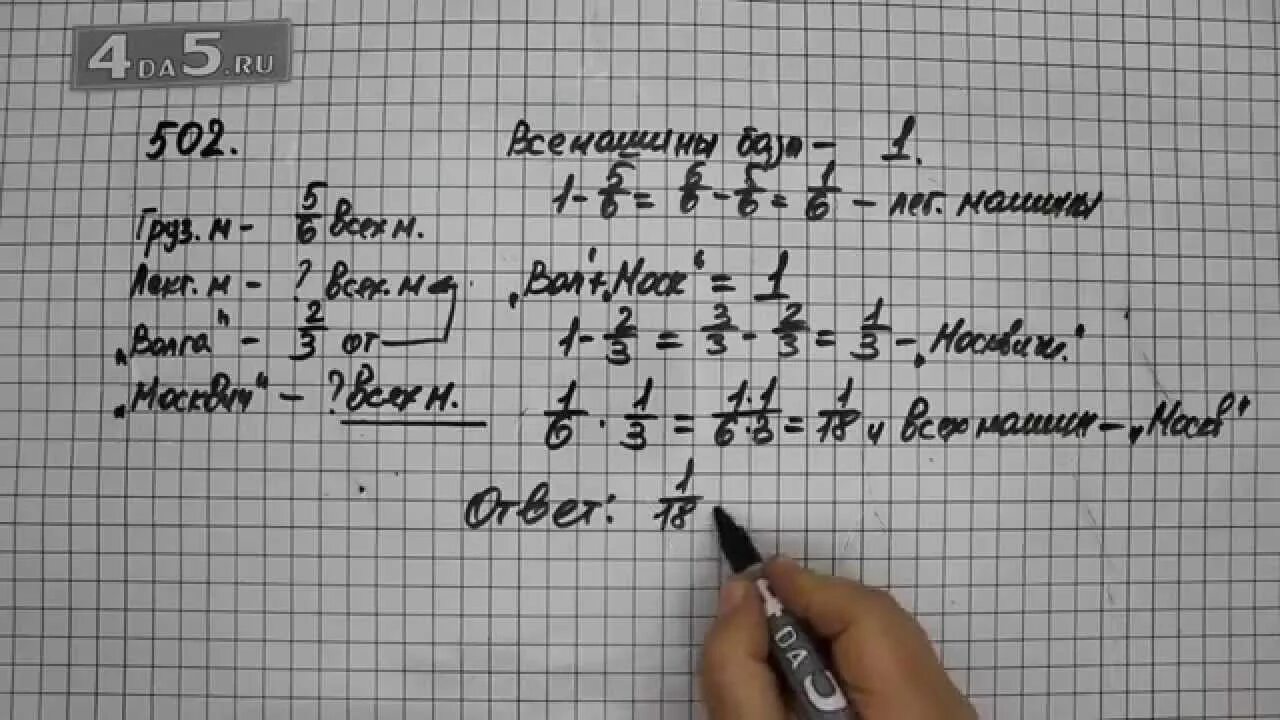 4DA5.RU
502.
Груз. м - 5/6 всех м.
Легк. м - ? всех. м
„Волга" - 2/3 от
„Москвич" - ? всех м.
Все машины базы - 1.
1 - 5/6 = 6/6 - 5/6 = 1/6 - лег. машины
„Вол"+„Моск" = 1
1 - 2/3 = 3/3 - 2/3 = 1/3 - „Москвич."
1/6 · 1/3 = 1·1/6·3 = 1/18 ч всех машин - „Моск"
Ответ: 1/18
DA